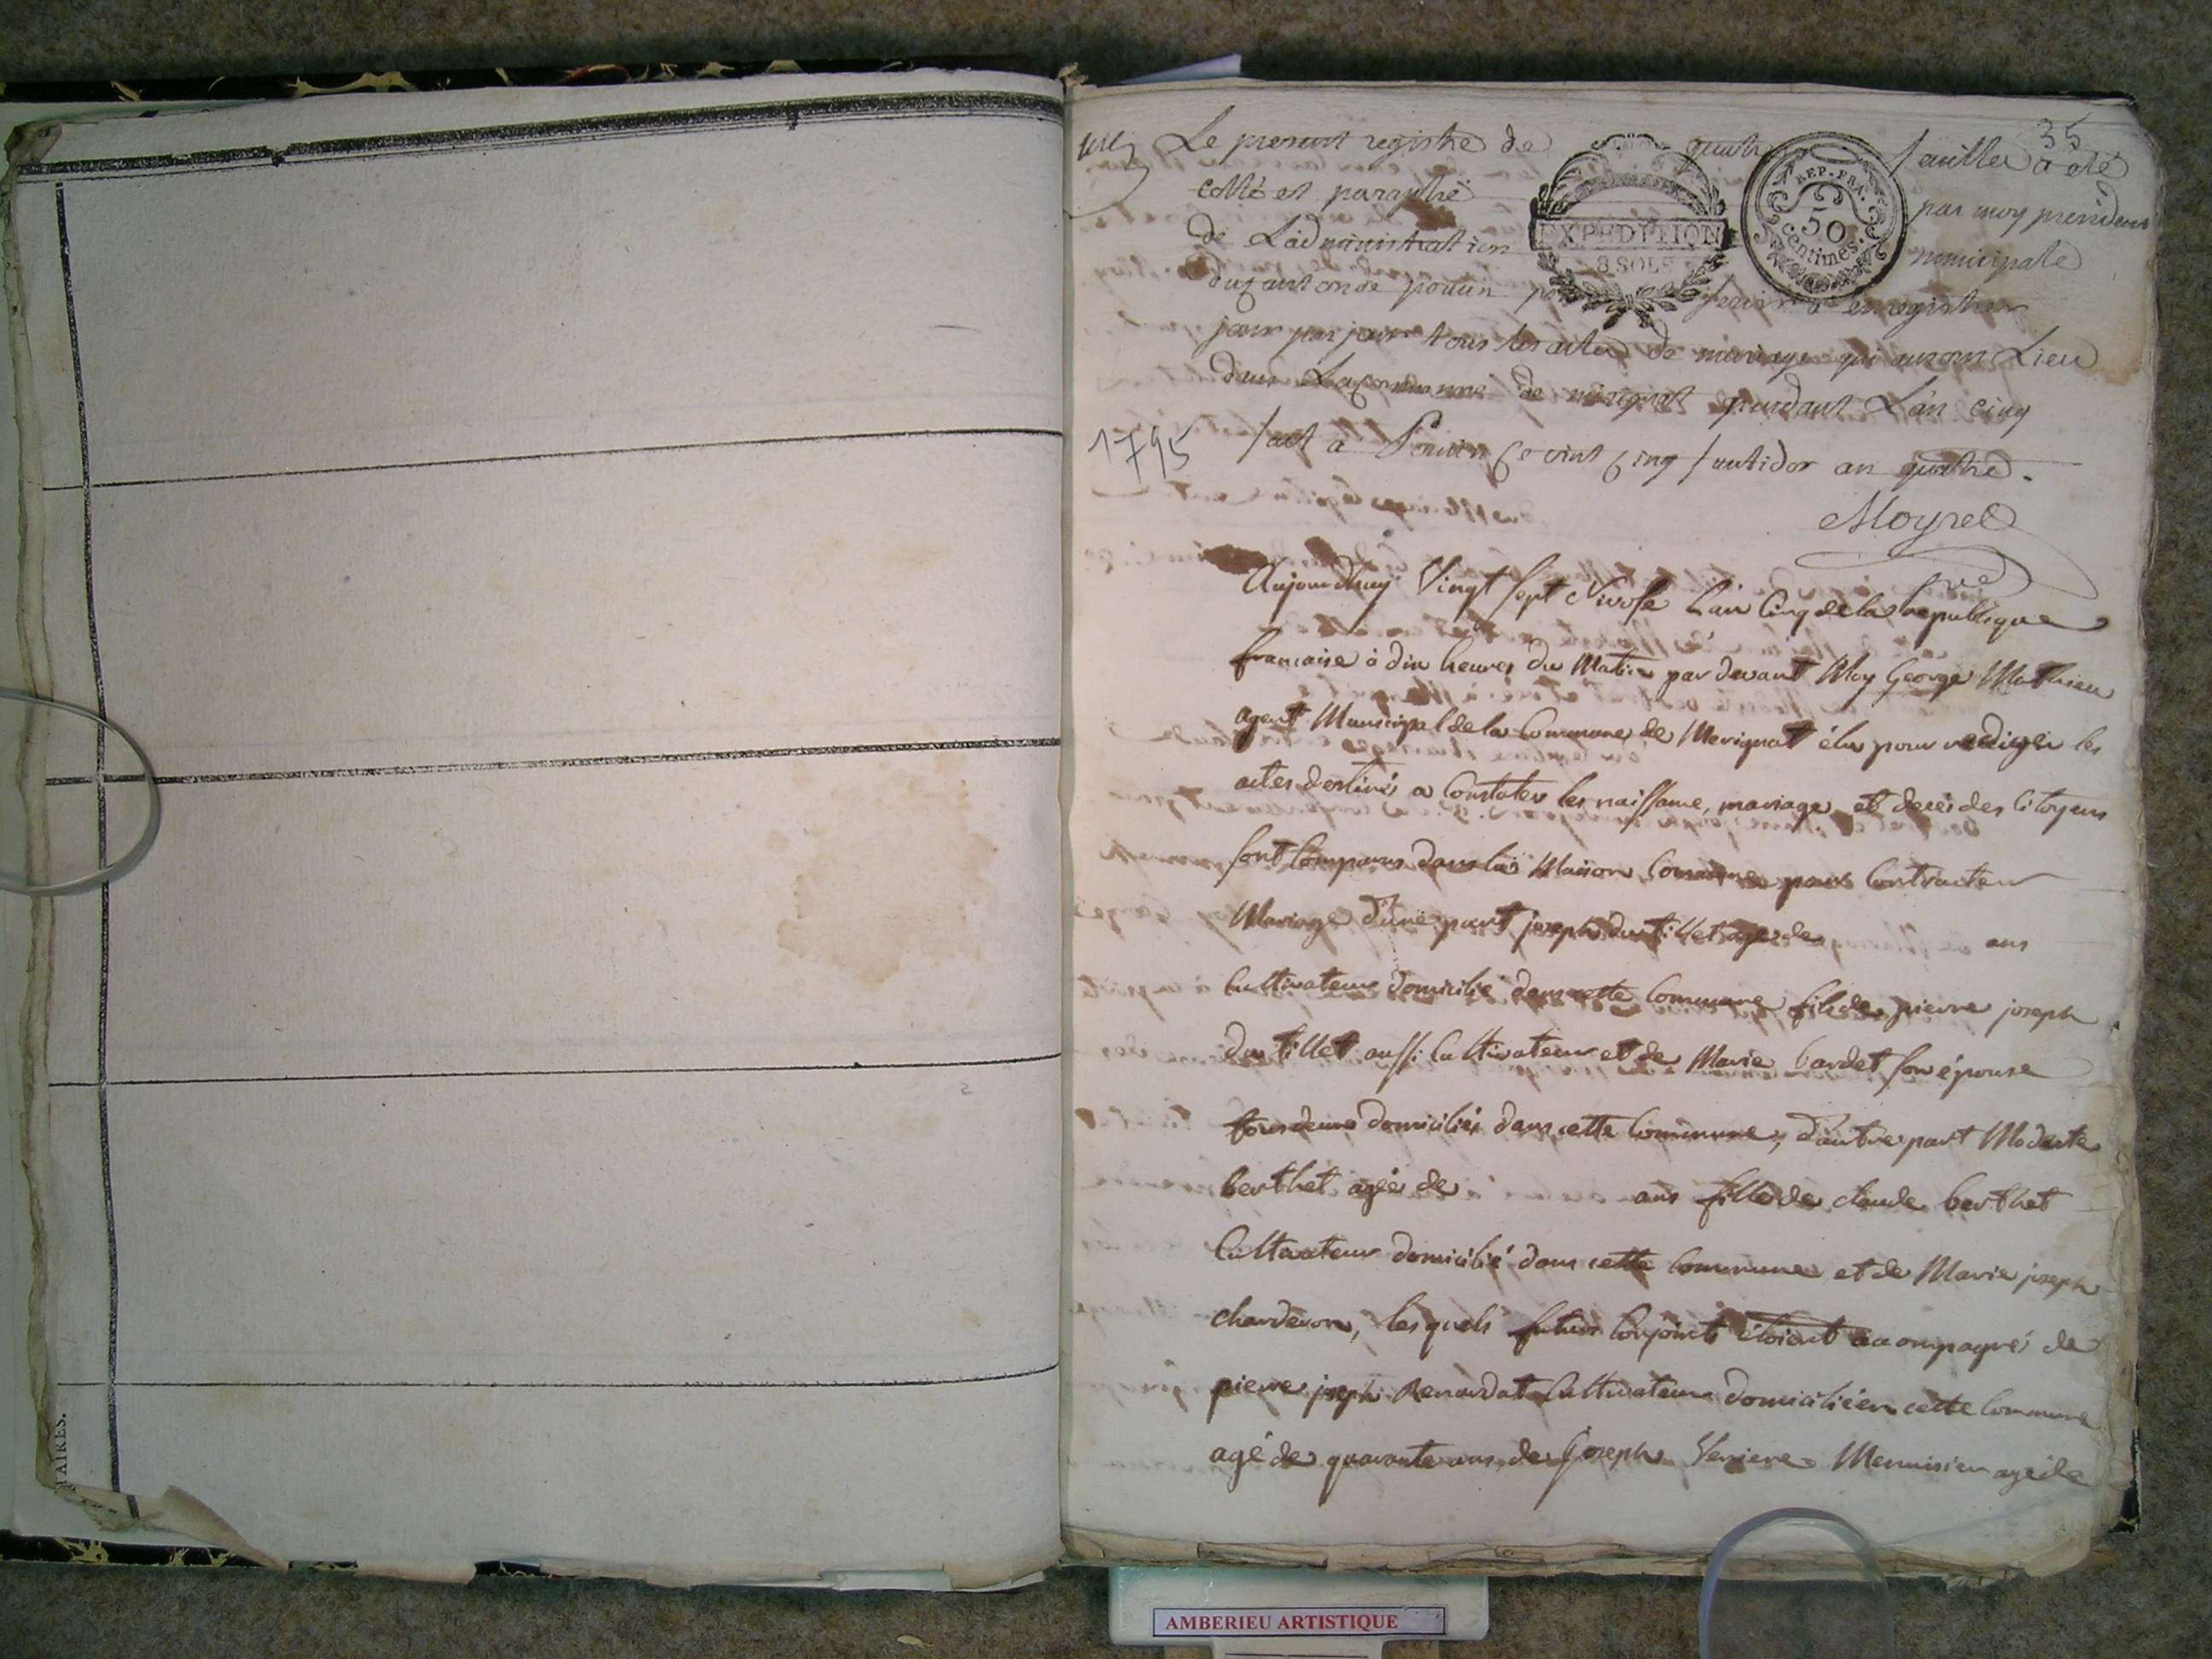 35
Le present registre de quatre feuillets a eté
cotté et paraphé par moy president
de Ladministration municipale
du Canton de poncin pour servir a enregistrer
jour par jour tous les actes de mariage qui auront Lieu
dans La commune de merignat pendant L'an cinq
1795
fait a Poncin ce vint cinq fructidor an quatre.
Moyret
EXPEDITION
8 SOLS
REP. FRA.
50
centimes.
Aujourdhuy Vingt sept Nivose L'an Cinq de la republique
francaise à dix heures du Matin par devant Moy George Mathieu
agent Municipal de la Commune de Merignat élu pour rediger les
actes destinés a Constater les naissance, mariage, et decés des Citoyens
sont Comparus dans la Maison Commune pour Contracter
Mariage d'une part joseph dutillet agé de ans
Cultivateur domicilié dans cette Commune fils de pierre joseph
dutillet aussi Cultivateur et de Marie bardet son épouse
tous deux domiciliés dans cette Commune, d'autre part Modeste
berthet agée de ans fille de claude berthet
Cultivateur domicilié dans cette Commune et de Marie joseph
charderon, lesquels futurs Conjoints étoient accompagné de
pierre joseph Renardat Cultivateur domicilié en cette Commune
agé de quarante ans, de Joseph Menuisier agé de
TAIRES.
AMBERIEU ARTISTIQUE